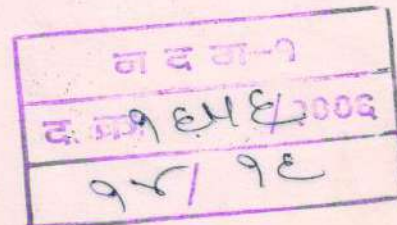 न द न-१
द. क्र. १६५६/२००६
१४/ १६